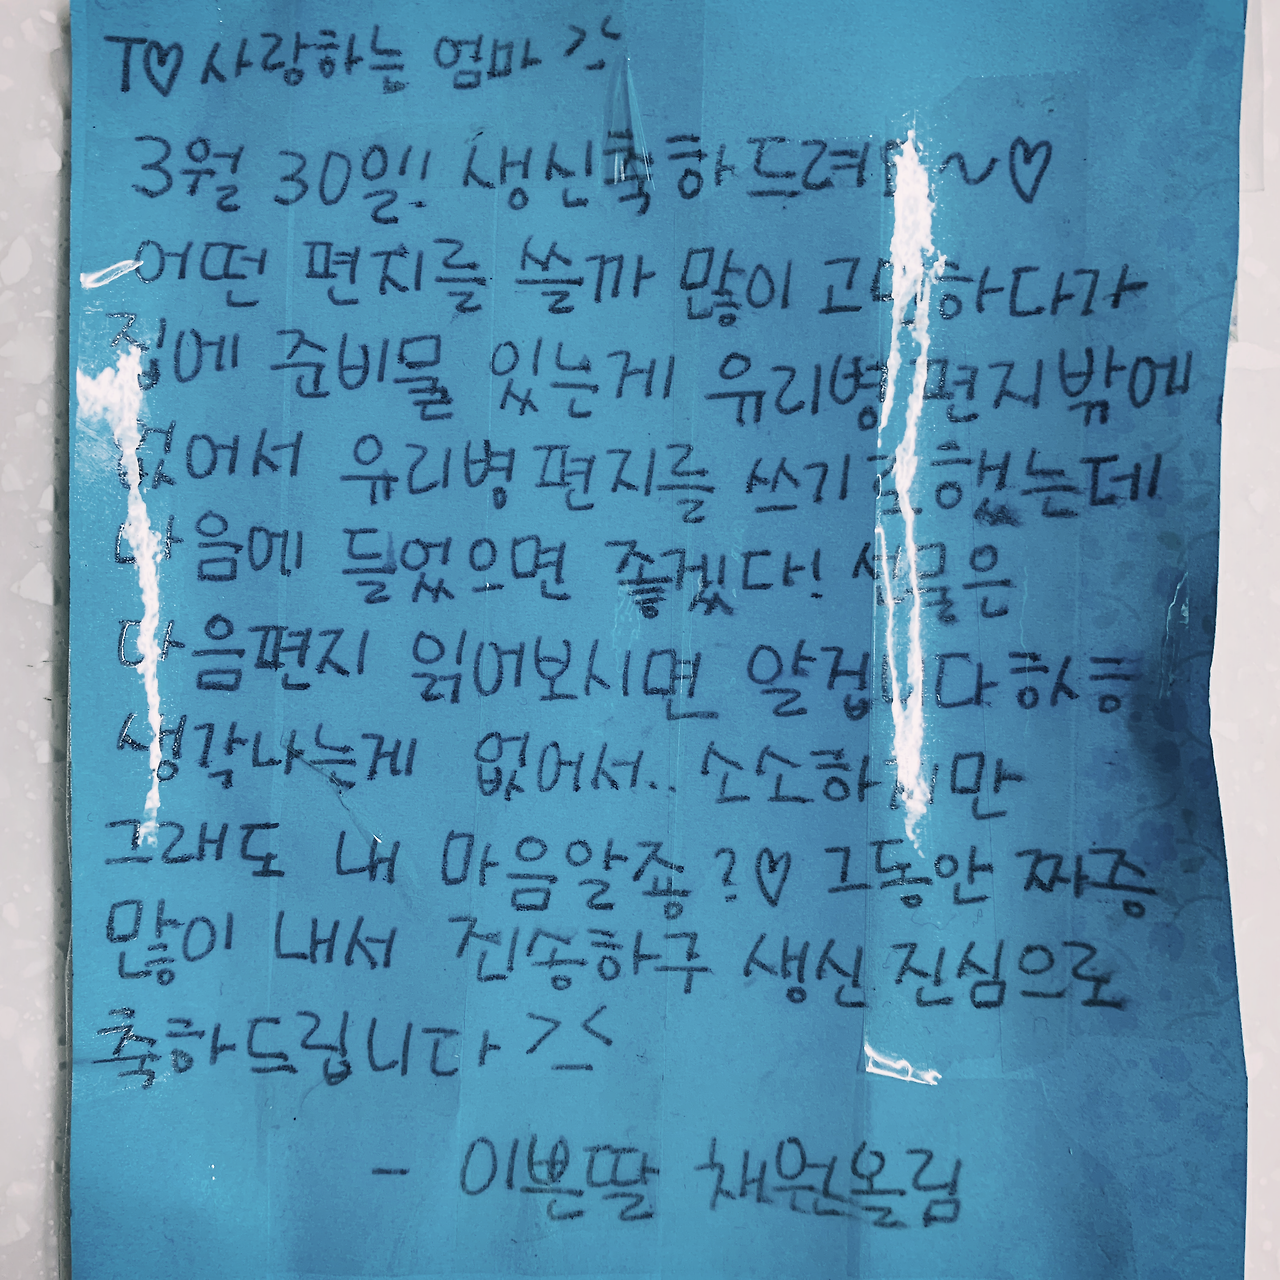 T♡ 사랑하는 엄마 >_<
3월 30일!! 생신축하드려요~♡
어떤 편지를 쓸까 많이 고민하다가
집에 준비물 있는게 유리병 편지밖에
없어서 유리병편지를 쓰기로했는데
마음에 들었으면 좋겠다! 선물은
다음편지 읽어보시면 알겁니다 하하
생각나는게 없어서.. 소소하지만
그래도 내 마음알죠?♡ 그동안 짜증
많이 내서 죄송하구 생신 진심으로
축하드립니다 >_<
- 이쁜딸 채원올림